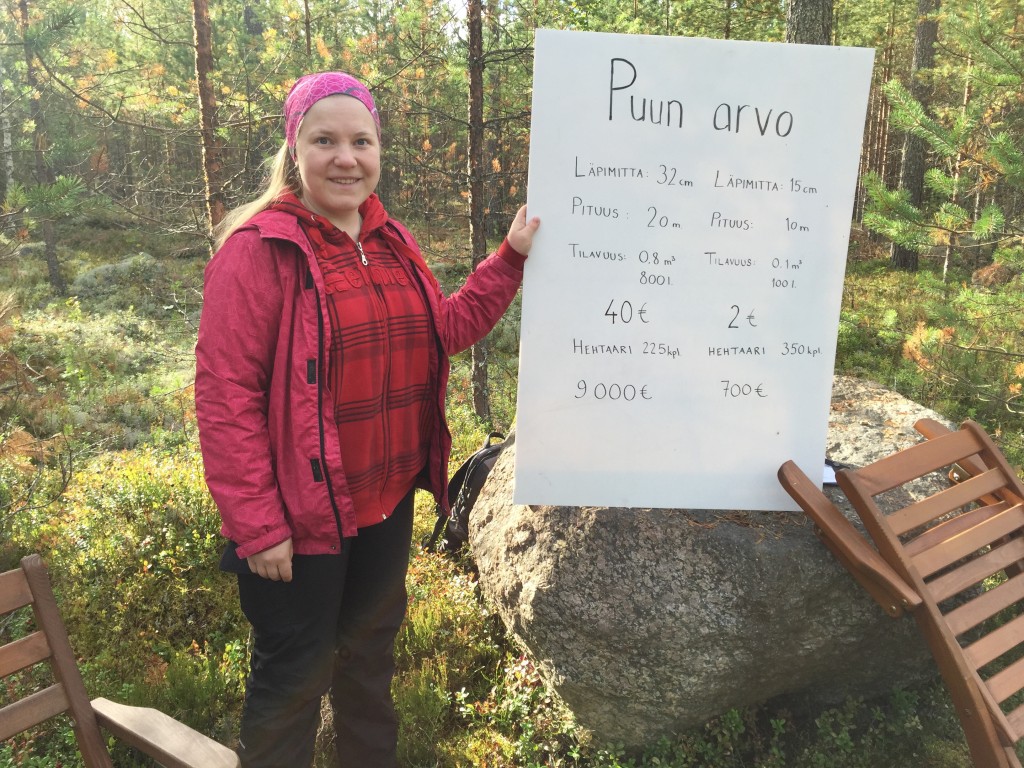 Puun arvo
Läpimitta: 32 cm Läpimitta: 15 cm
Pituus: 20 m Pituus: 10 m
Tilavuus: 0,8 m³ Tilavuus: 0,1 m³
800 l. 100 l.
40 € 2 €
Hehtaari 225 kpl. Hehtaari 350 kpl.
9 000 € 700 €